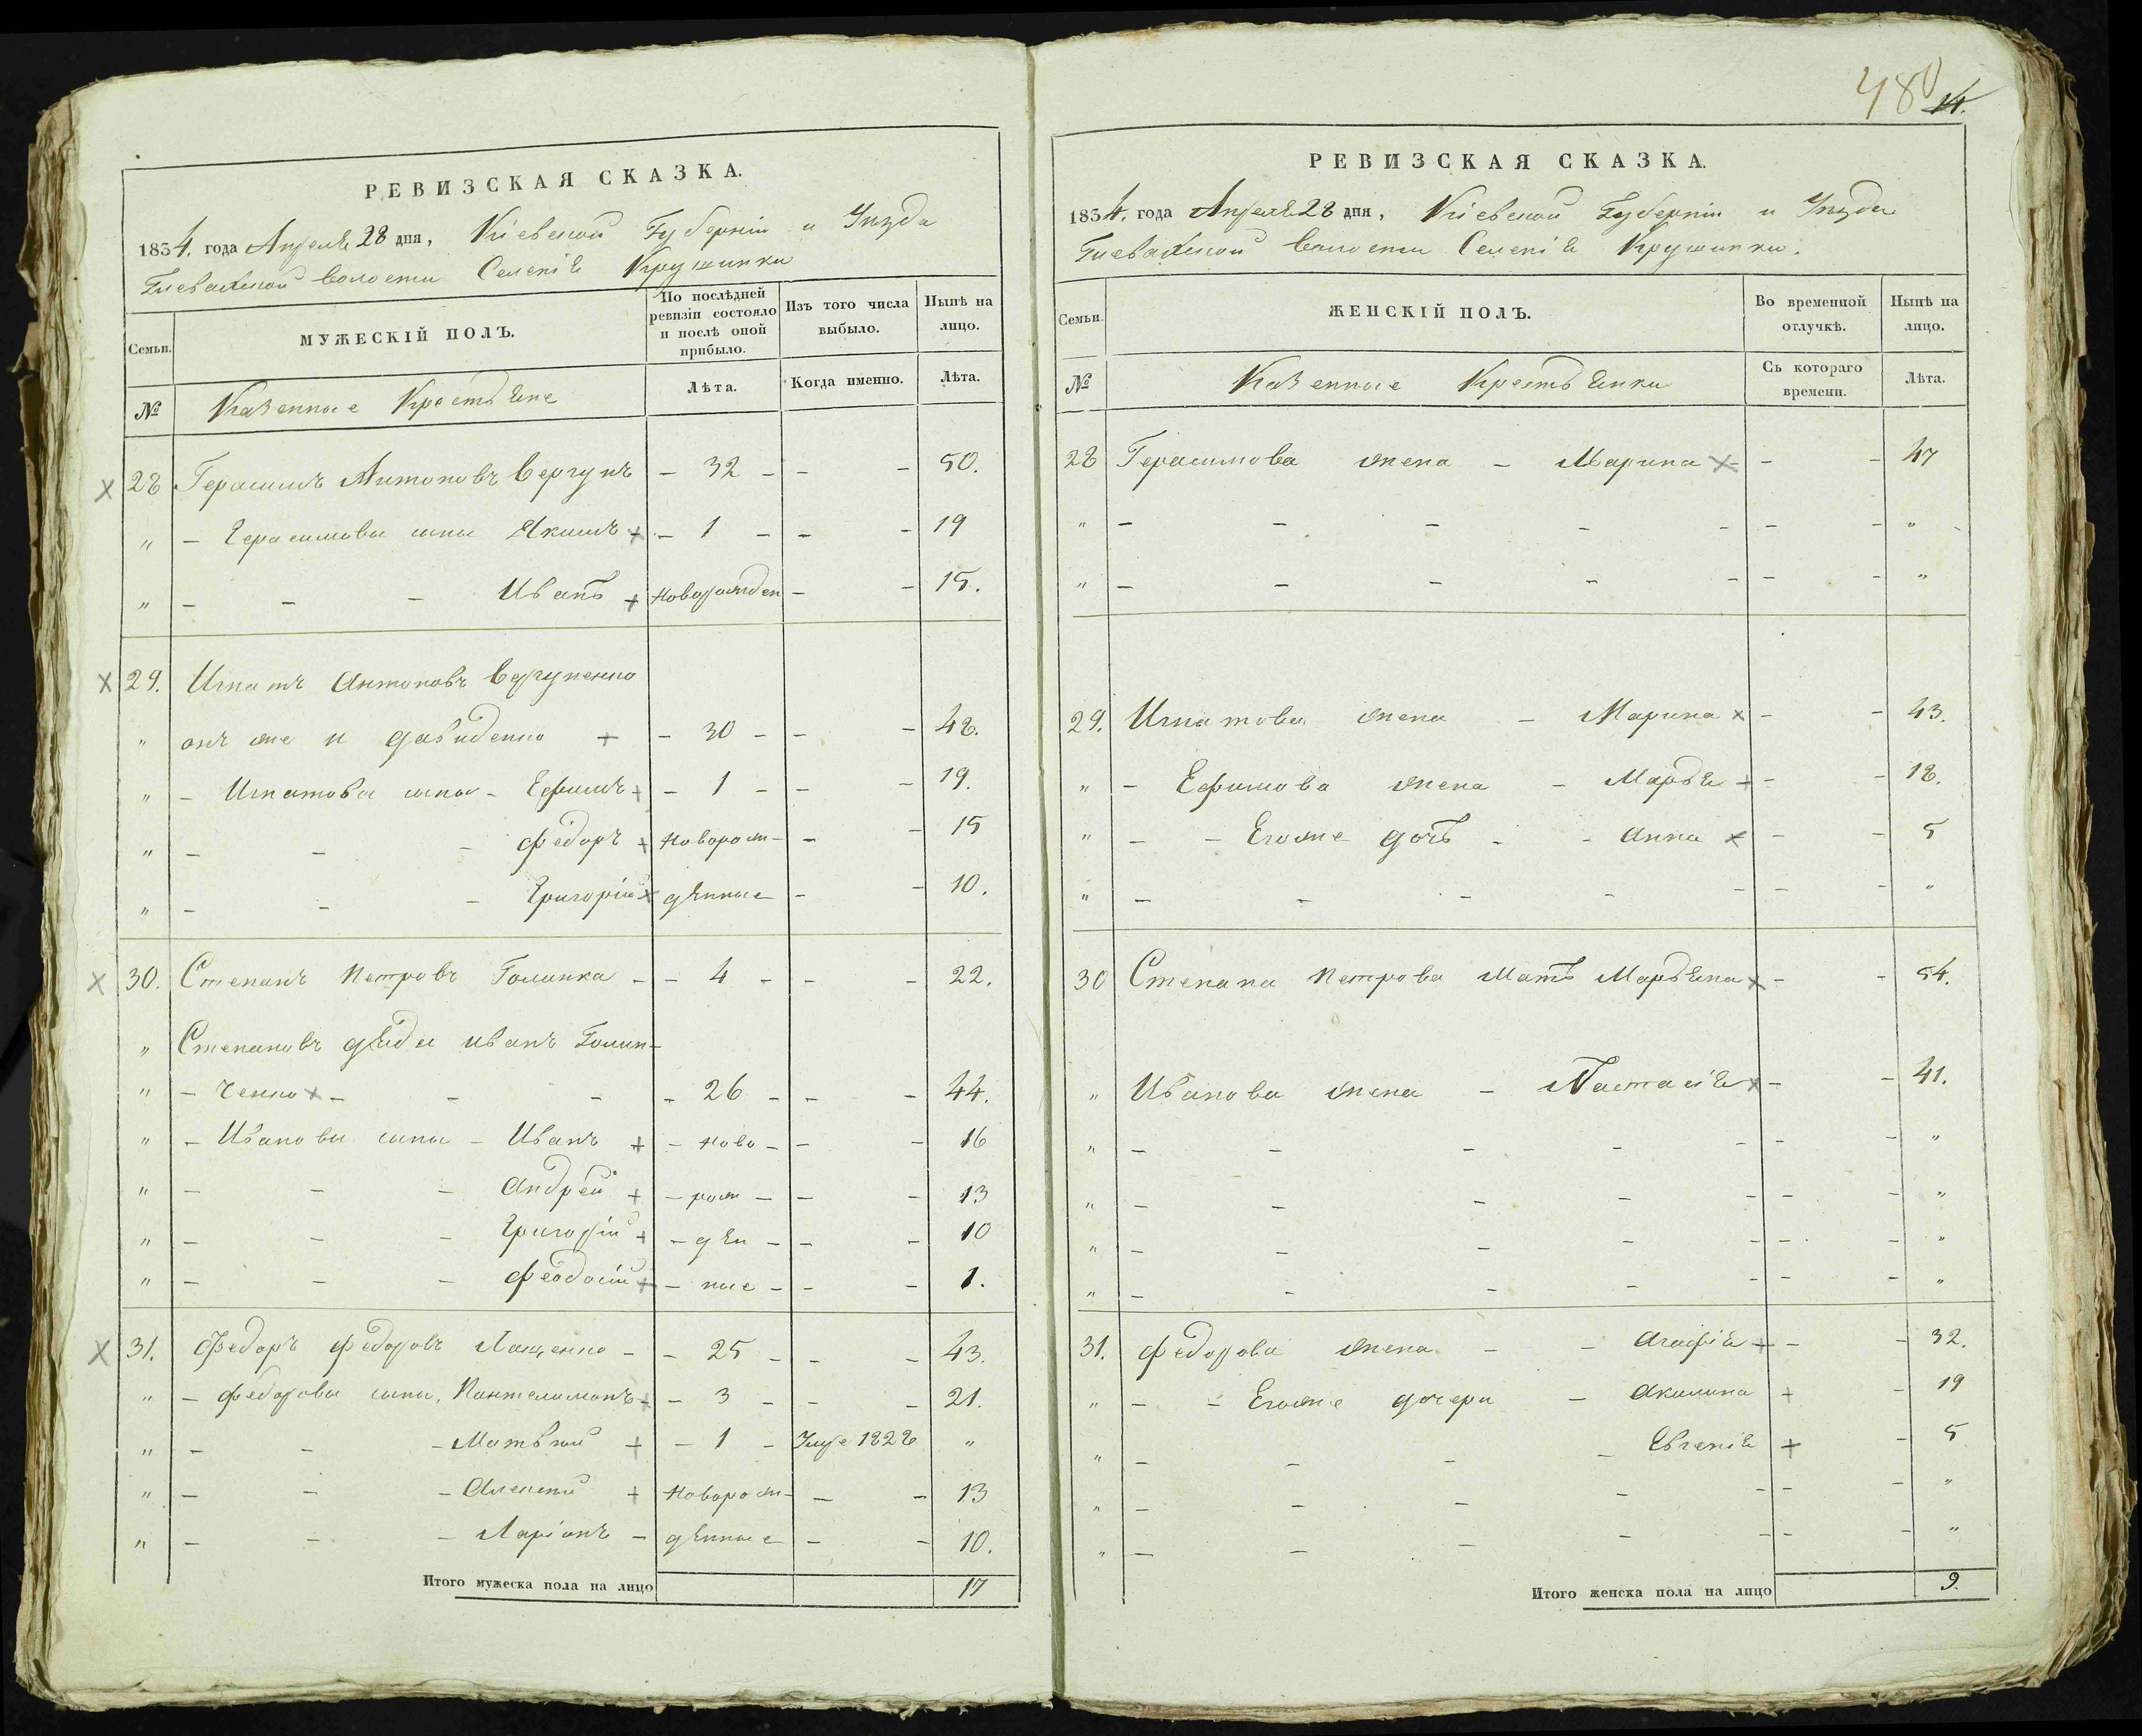 РЕВИЗСКАЯ СКАЗКА.
1834. года Апреля 28 дня, Кіевской Губерніи и Уѣзда
Глевахской волости Селенія Крушинки
Семьи. МУЖЕСКІЙ ПОЛЪ. По послѣдней ревизіи состояло и послѣ оной прибыло. Изъ того числа выбыло. Нынѣ на лицо.
№ Казенные Крестьяне Лѣта. Когда именно. Лѣта.
28 Герасимъ Антоновъ Вергунъ - 32 - - - 50.
" - Герасимовы сыны Якимъ - 1 - - - 19
" - - - Иванъ новорожден - - 15.
29. Игнатъ Антоновъ Вергуненко
" онъ же и Давиденко - 30 - - - 48.
" - Игнатовы сыны - Ефимъ - 1 - - - 19.
" - - - Федоръ новорож- - - 15
" - - - Григорій дѣнные - - 10.
30. Степанъ Петровъ Голинка - - 4 - - - 22.
" Степановъ дядя Иванъ Голин-
" - ченко - - - - 26 - - - 44.
" - Ивановы сыны - Иванъ - ново - - - 16
" - - - Андрей - рож - - - 13
" - - - Григорій - дѣн - - - 10
" - - - Феодосій - ные - - - 1.
31. Федоръ Федоровъ Лащенко - - 25 - - - 43.
" - Федоровы сыны, Пантелимонъ - 3 - - - 21.
" - - - Матвѣй - 1 - Умре 1828 "
" - - - Алексей новорож- - - 13
" - - - Ларіонъ - дѣнные - - 10.
Итого мужеска пола на лицо 17
480 14.
РЕВИЗСКАЯ СКАЗКА.
1834. года Апреля 28 дня, Кіевской Губерніи и Уѣзда
Глевахской волости Селенія Крушинки.
Семьи. ЖЕНСКІЙ ПОЛЪ. Во временной отлучкѣ. Нынѣ на лицо.
№ Казенные Крестьянки Съ котораго времени. Лѣта.
28 Герасимова жена - Марина - - - 47
" - - - - - - - "
" - - - - - - - "
29. Игнатова жена - Марина - - 43.
" - Ефимова жена - Марья - - 18.
" - - Егоже дочь - - Анна - - 5
" - - - - - - - "
30 Степана Петрова мать Марьяна - - 54.
" Иванова жена - Настасія - - 41.
" - - - - - - - "
" - - - - - - - "
" - - - - - - - "
" - - - - - - - "
31. Федорова жена - - Агафія - - 32.
" - - Егоже дочери - Акилина - 19
" - - - - Евгенія - 5
" - - - - - - - "
" - - - - - - - "
Итого женска пола на лицо 9.